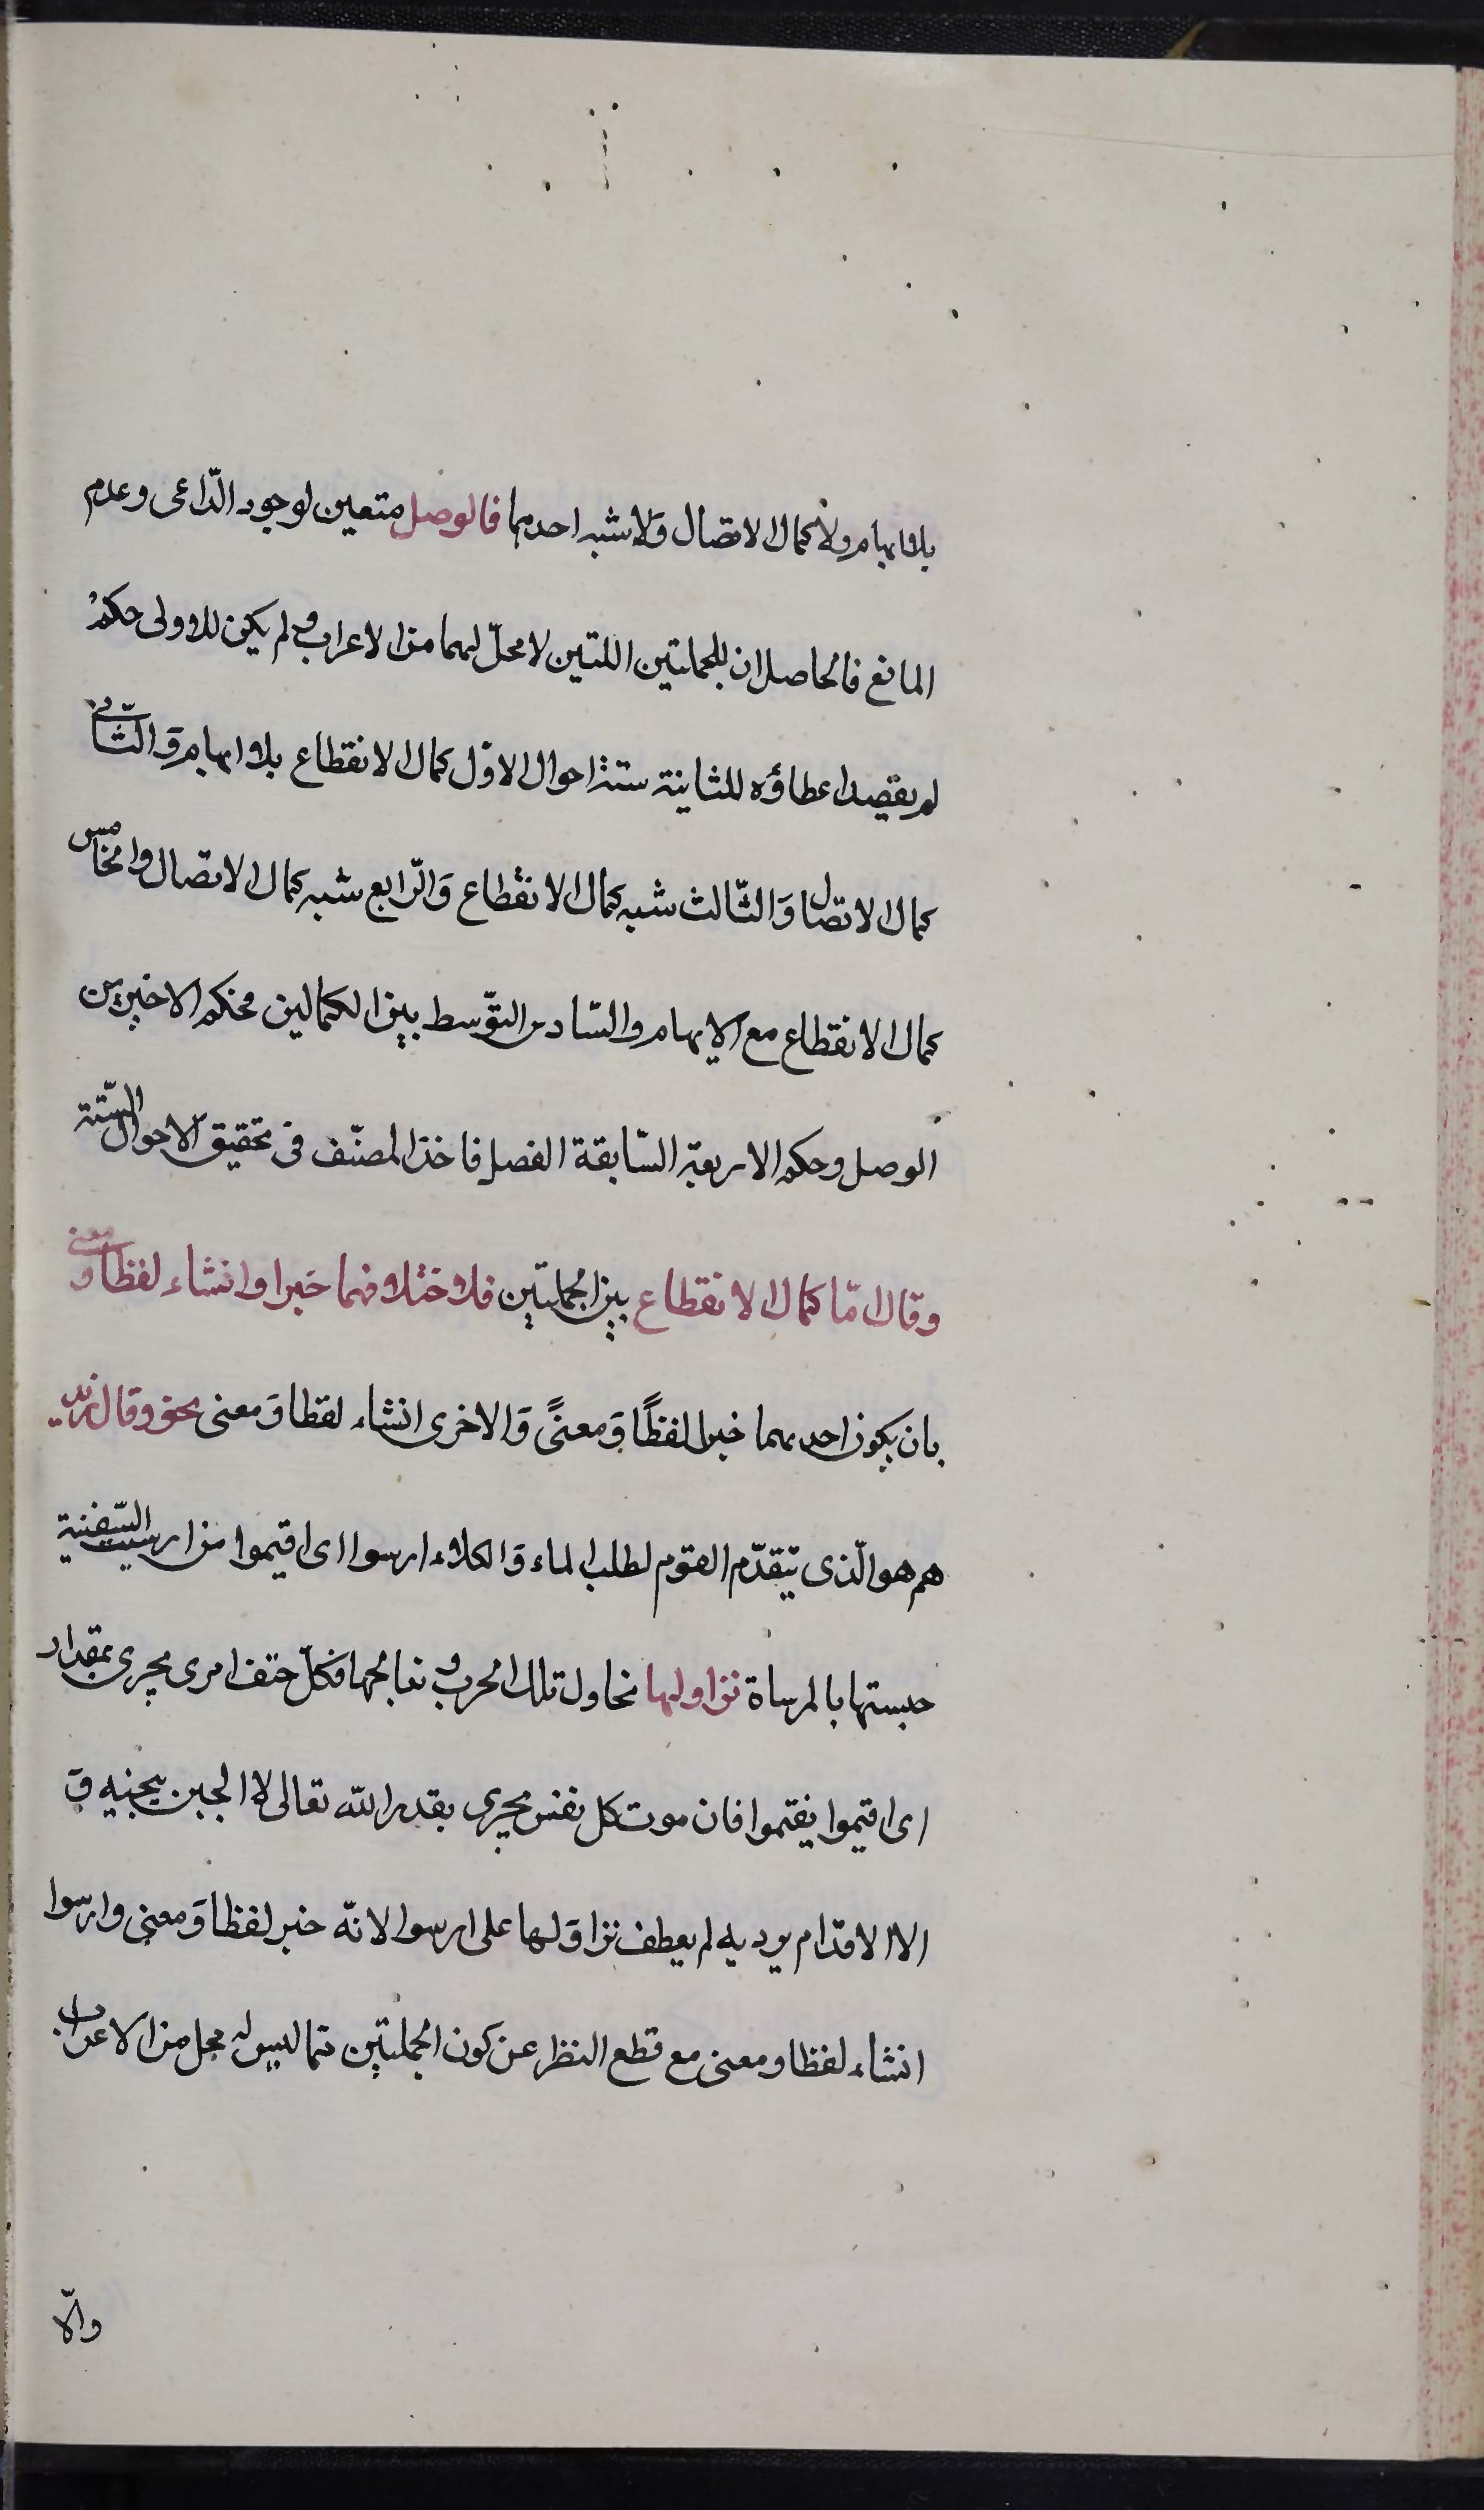 بلا ايهام ولا كمال الاتصال وَلا شبه احدهما فالوصل متعين لوجود الدّاعى وعدم
المانع فالحاصل ان للجملتين اللتين لا محلّ لهما من الاعراب ولم يكن للاولى حكمٌ
لم يقصد اعطاؤه للثانية ستة احوال الاوّل كمال الانقطاع بلا ايهام وَالثّانى
كمال الاتصال وَالثّالث شبه كمال الانقطاع وَالرّابع شبه كمال الاتصال والخامس
كمال الانقطاع مع الايهام والسّادس التوّسط بين الكمالين فحكم الاخيرين
الوصل وحكم الاربعة السّابقة الفصل فاخذ المصنّف فى تحقيق الاحوال السّتة
وقال امّا كمال الانقطاع بين الجملتين فلاختلافهما خبرا وانشاء لفظا ومعنى
بان يكون احديهما خبرا لفظًا وَمعنىً وَالاخرى انشاء لفظا وَمعنى نحو وقال رايد
هم هو الّذى يتقدّم القوم لطلب الماء وَالكلاء ارسوا اى اقيموا من ارسيت السّفينة
حبستها بالمرساة نزاولها نحاول تلك الحرب ونعالجها فكلّ حتف امرى يجرى بمقدار
اى اقيموا نقتموا فان موت كل نفس يجرى بقدر الله تعالى لا الجبن ينجيه وَ
لا الاقدام يرديه لم يعطف نزاوَلها على ارسوا لانّه خبر لفظا وَمعنى وارسوا
انشاء لفظا ومعنى مع قطع النظر عن كون الجملتين ممّا ليس له محل من الاعراب
والّا